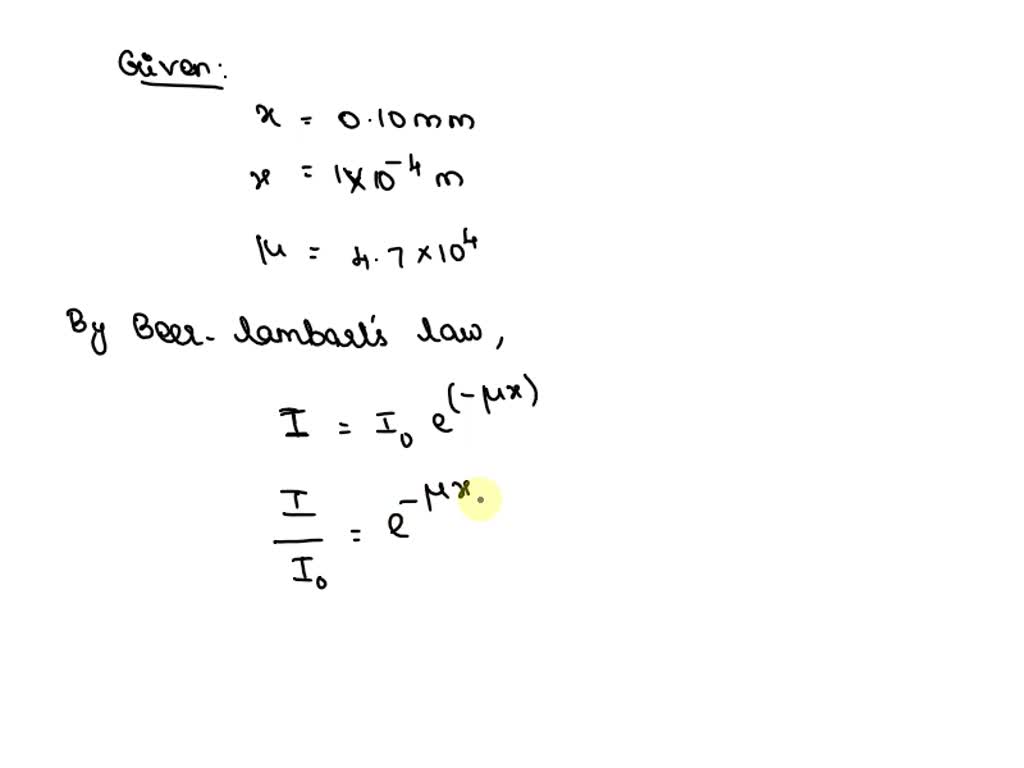 Given:
x = 0.10mm
x = 1×10⁻⁴ m
μ = 4.7×10⁴
By Beer-lambart's law,
I = I₀ e^(-μx)
I/I₀ = e^-μx